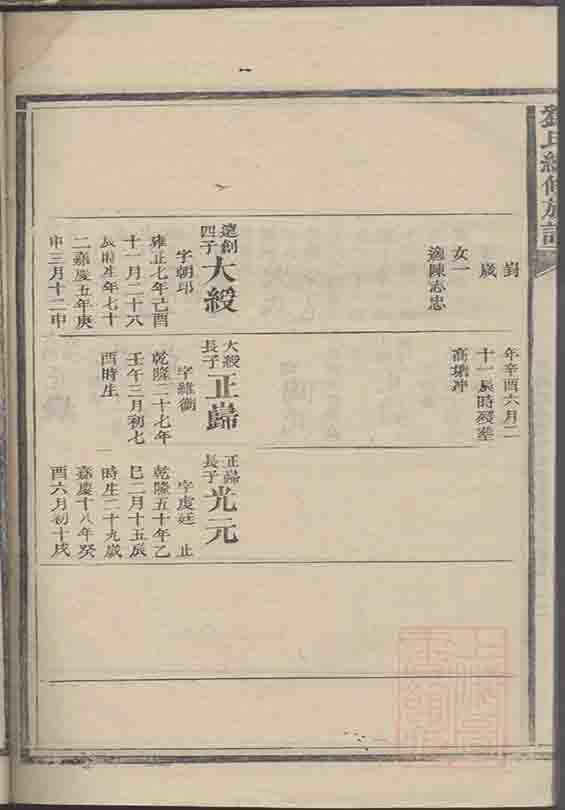 劉氏續修族譜
對
歲
女一
適陳志忠
年辛酉六月二
十一辰時歿塟
高塘冲
遠創
四子
大綬
字朝印
雍正七年己酉
十一月二十八
辰時生年七十
二嘉慶五年庚
申三月十二申
大綬
長子
正歸
字維衡
乾隆二十七年
壬午三月初七
酉時生
正歸
長子
光元
字虞廷 止
乾隆五十年乙
巳二月十五辰
時生二十九歲
嘉慶十八年癸
酉六月初十戌